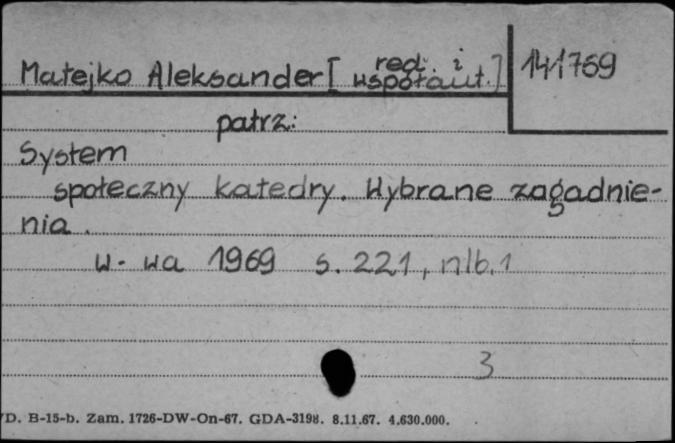 Matejko Aleksander [red. i współaut.] 141769
patrz:
System
społeczny katedry. Wybrane zagadnie-
nia.
W-wa 1969 s. 221, nlb. 1
3
D. B-15-b. Zam. 1726-DW-On-67. GDA-3198. 8.11.67. 4.630.000.